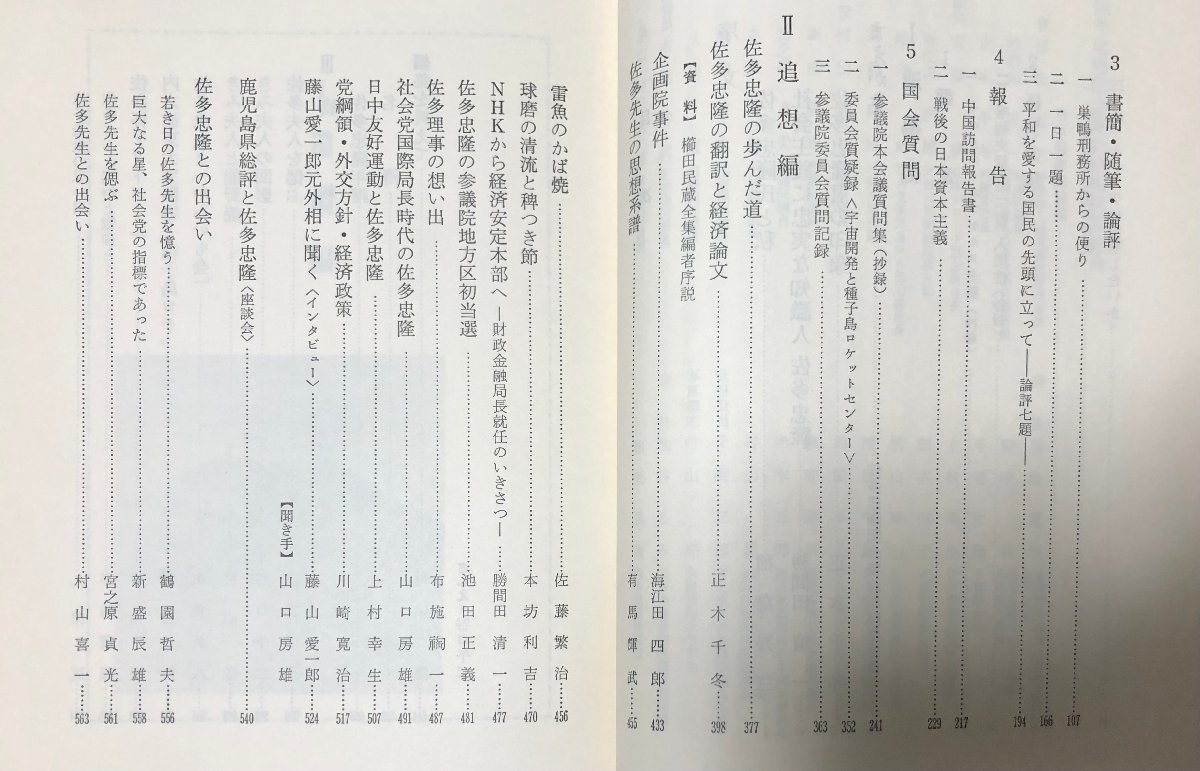 3 書簡・随筆・論評
一 巣鴨刑務所からの便り……107
二 一日一題……166
三 平和を愛する国民の先頭に立って――論評七題――……194
4 報告
一 中国訪問報告書……217
二 戦後の日本資本主義……229
5 国会質問
一 参議院本会議質問集（抄録）……241
二 委員会質疑録〈宇宙開発と種子島ロケットセンター〉……352
三 参議院委員会質問記録……363
Ⅱ 追想編
佐多忠隆の歩んだ道……377
佐多忠隆の翻訳と経済論文……正木千冬……398
【資料】櫛田民蔵全集編者序説
企画院事件……海江田四郎……433
佐多先生の思想系譜……有馬輝武……455
雷魚のかば焼……佐藤繁治……456
球磨の清流と稗つき節……本坊利吉……470
NHKから経済安定本部へ―財政金融局長就任のいきさつ―……勝間田清一……477
佐多忠隆の参議院地方区初当選……池田正義……481
佐多理事の想い出……布施陶一……487
社会党国際局長時代の佐多忠隆……山口房雄……491
日中友好運動と佐多忠隆……上村幸生……507
党綱領・外交方針・経済政策……川崎寛治……517
藤山愛一郎元外相に聞く〈インタビュー〉……藤山愛一郎……524
【聞き手】山口房雄
鹿児島県総評と佐多忠隆〈座談会〉……540
佐多忠隆との出会い
若き日の佐多先生を憶う……鶴園哲夫……556
巨大なる星、社会党の指標であった……新盛辰雄……558
佐多先生を偲ぶ……宮之原貞光……561
佐多先生との出会い……村山喜一……563